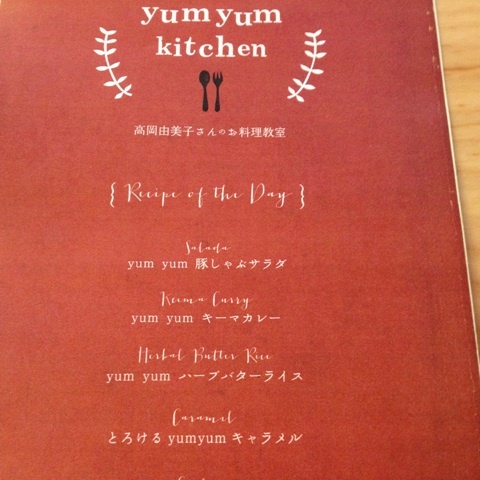 yum yum
kitchen
高岡由美子さんのお料理教室
{ Recipe of the Day }
Salada
yum yum 豚しゃぶサラダ
Keema Curry
yum yum キーマカレー
Herbal Butter Rice
yum yum ハーブバターライス
Caramel
とろけるyumyumキャラメル